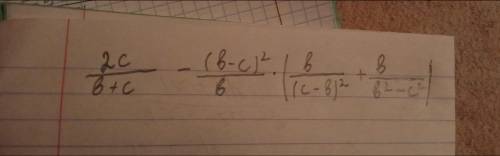 \frac{2c}{b+c} - \frac{(b-c)^2}{b} \cdot \left( \frac{b}{(c-b)^2} + \frac{b}{b^2-c^2} \right)